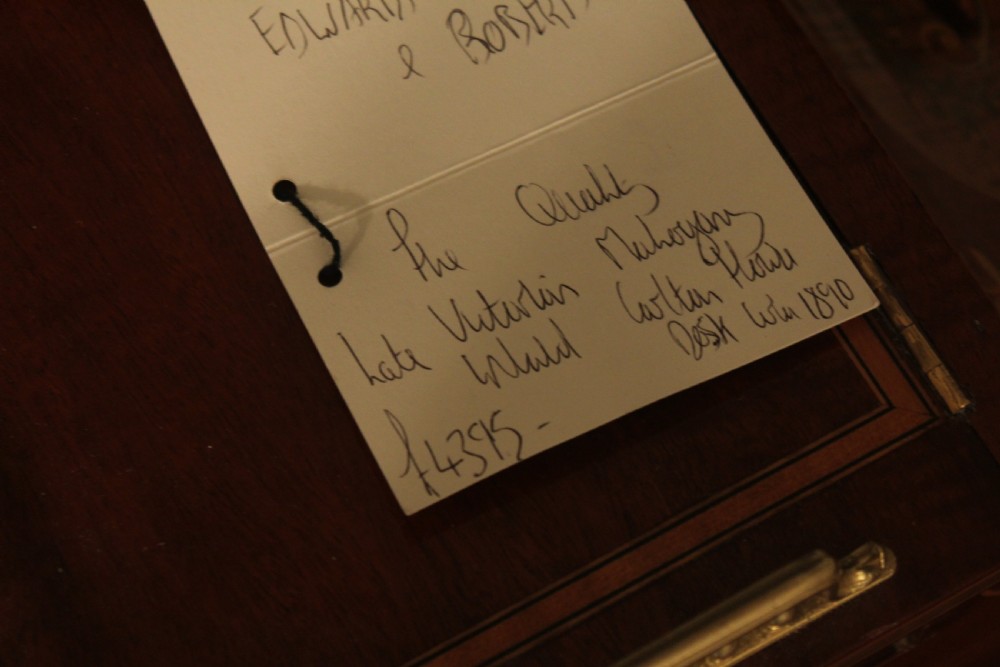 EDWARDS
& ROBERTS
Fine Quality
Late Victorian Mahogany
Inlaid Carlton House
Desk Circa 1890
£4395-